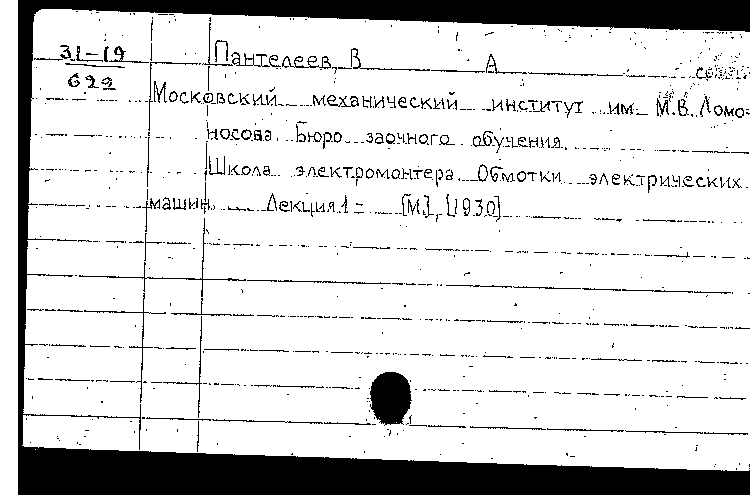 31-19
622
Пантелеев, В А
Московский механический институт им. М.В. Ломо-
носова. Бюро заочного обучения.
Школа электромонтера. Обмотки электрических
машин. Лекция 1 - [М.], [1930]